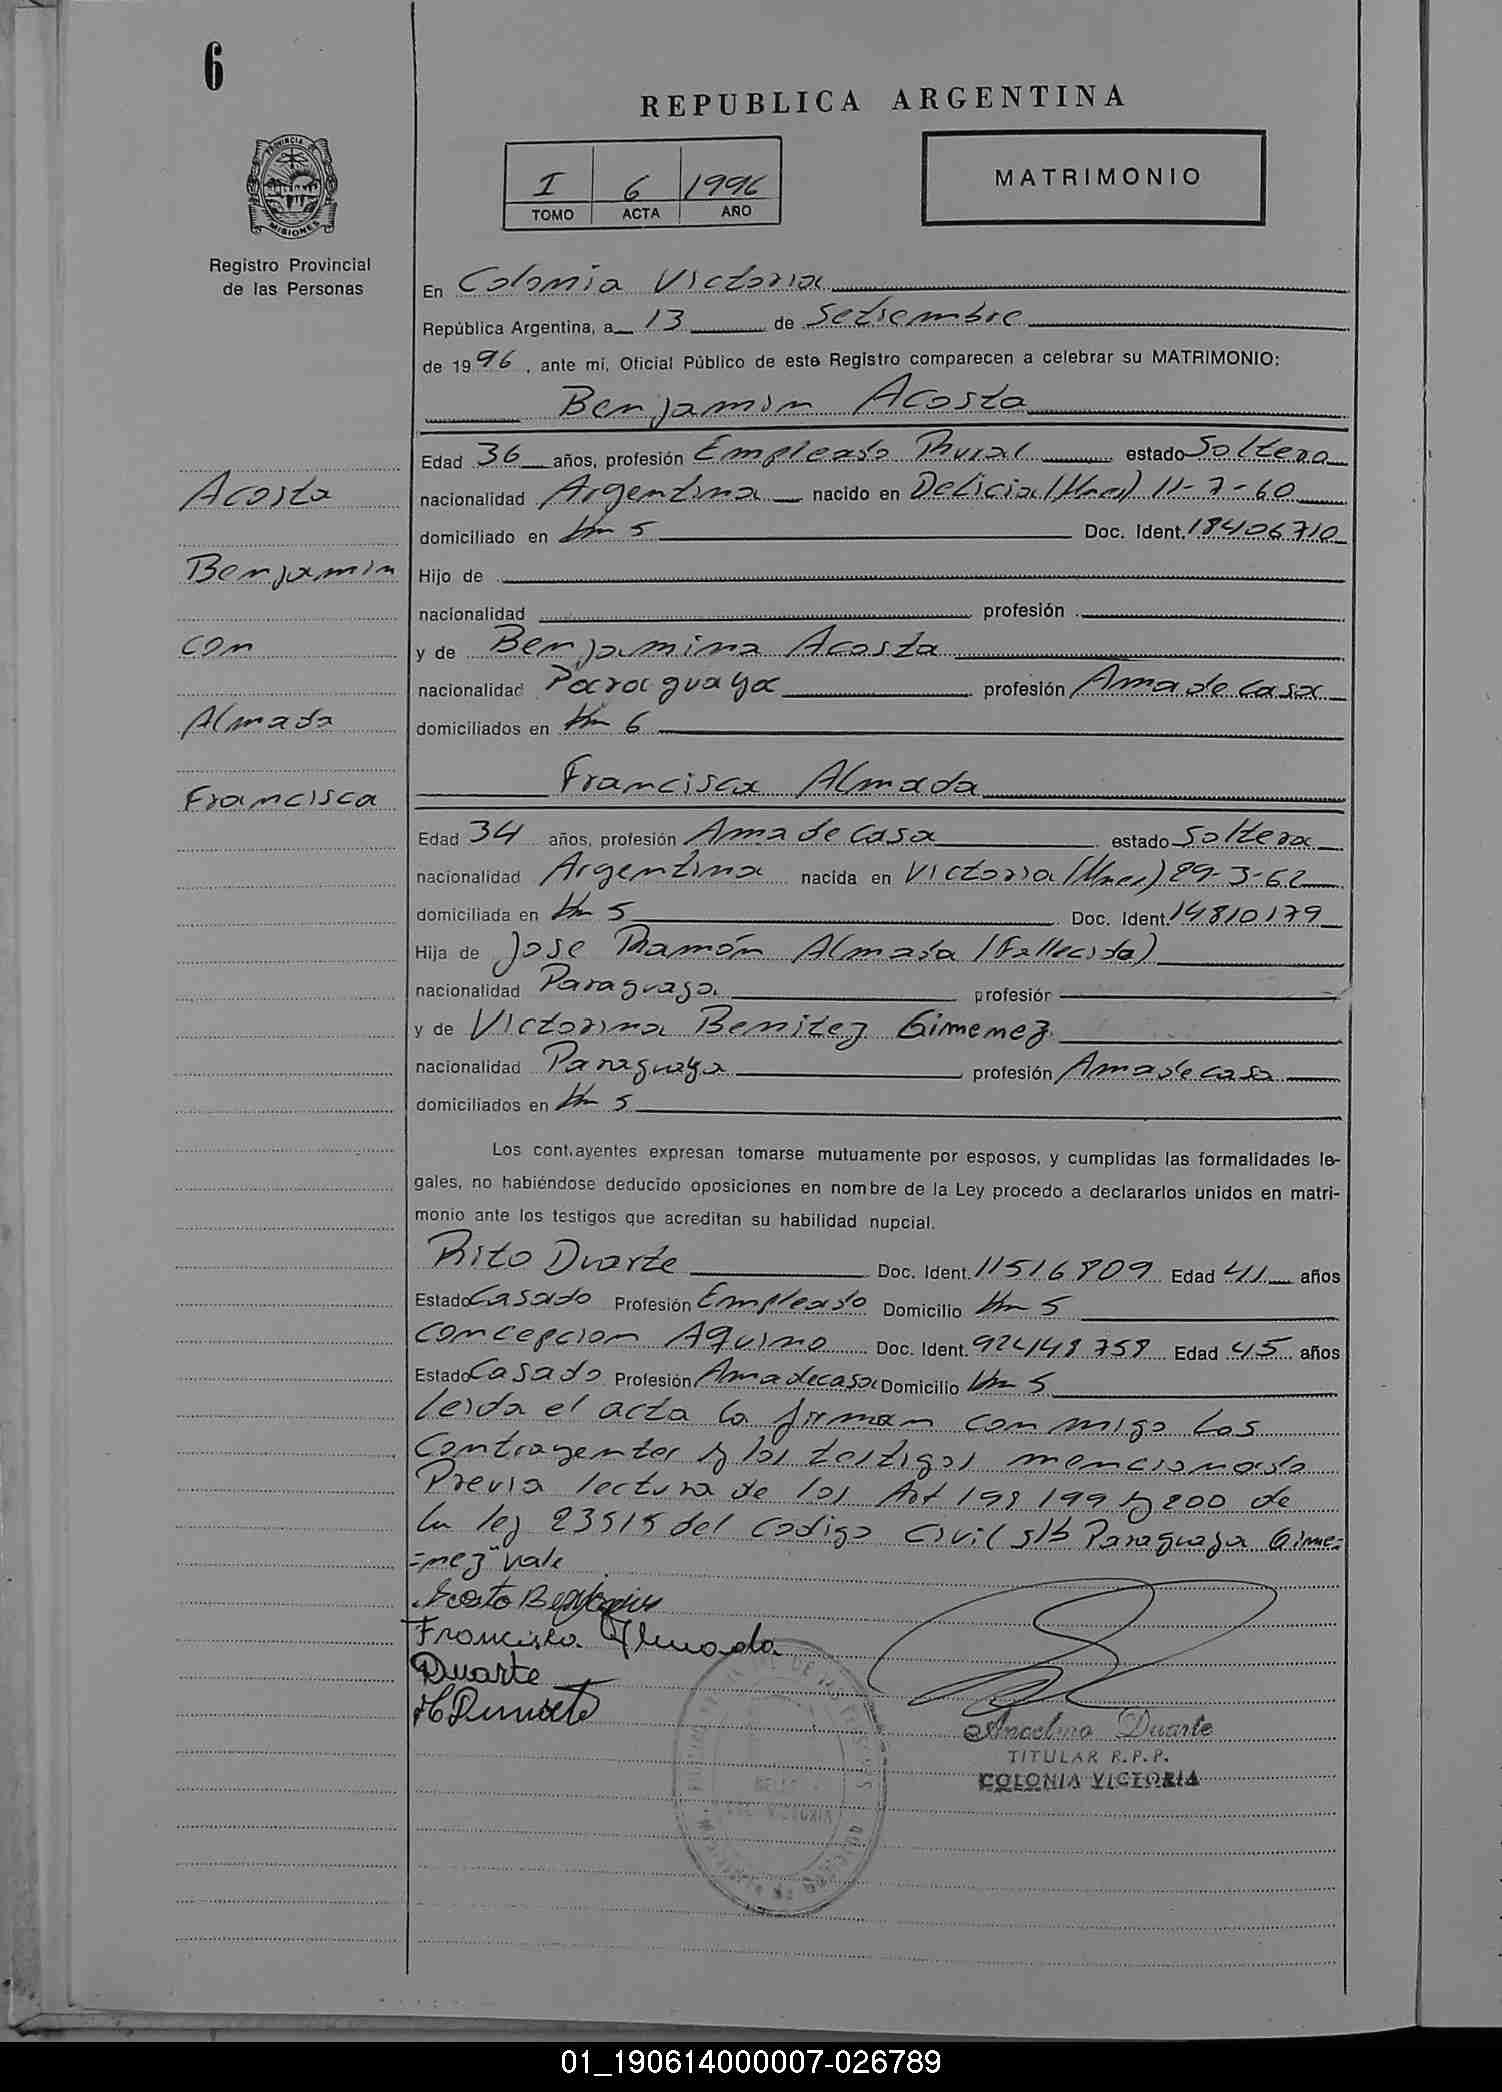 6
REPUBLICA ARGENTINA
I 6 1996
TOMO ACTA AÑO
MATRIMONIO
PROVINCIA DE
MISIONES
Registro Provincial
de las Personas
En Colonia Victoria
República Argentina, a 13 de Setiembre
de 1996, ante mí, Oficial Público de este Registro comparecen a celebrar su MATRIMONIO:
Benjamin Acosta
Edad 36 años, profesión Empleado Rural estado Soltero
nacionalidad Argentina nacido en Delicia (Mnes) 11-7-60
domiciliado en Km 5 Doc. Ident. 18406710
Hijo de
nacionalidad profesión
y de Benjamina Acosta
nacionalidad Paraguaya profesión Ama de casa
domiciliados en Km 6
Francisca Almada
Edad 34 años, profesión Ama de Casa estado Soltera
nacionalidad Argentina nacida en Victoria (Mnes) 29-3-62
domiciliada en Km 5 Doc. Ident. 14810179
Hija de Jose Ramón Almada (Fallecido)
nacionalidad Paraguaya profesión
y de Victorina Benitez Gimenez
nacionalidad Paraguaya profesión Ama de casa
domiciliados en Km 5
Acosta
Benjamin
con
Almada
Francisca
Los cont.ayentes expresan tomarse mutuamente por esposos, y cumplidas las formalidades le-
gales, no habiéndose deducido oposiciones en nombre de la Ley procedo a declararlos unidos en matri-
monio ante los testigos que acreditan su habilidad nupcial.
Rito Duarte Doc. Ident. 11516809 Edad 41 años
Estado Casado Profesión Empleado Domicilio Km 5
Concepcion Aquino Doc. Ident. 92448758 Edad 45 años
Estado Casado Profesión Ama de casa Domicilio Km 5
Leida el acta la firman conmigo los
Contrayentes y los testigos mencionado
Previa lectura de los Art 198 199 y 200 de
la ley 23515 del Codigo Civil s/b Paraguaya Gime=
=nez" vale
Acosta Benjamin
Francisca Almada
Duarte
Anselmo Duarte
TITULAR R.P.P.
COLONIA VICTORIA
01_190614000007-026789